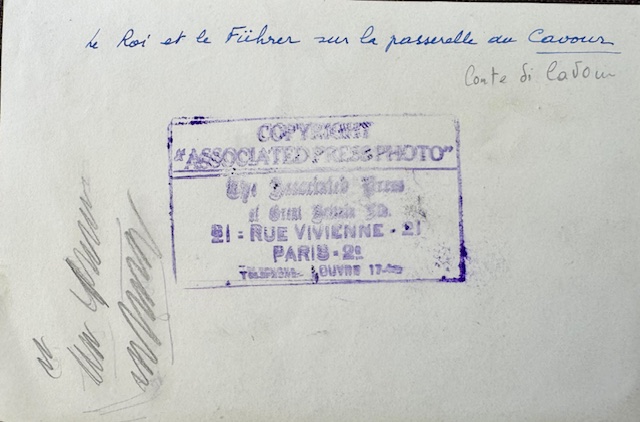 Le Roi et le Führer sur la passerelle du Cavour
Conte di Cavour
COPYRIGHT
"ASSOCIATED PRESS PHOTO"
The Associated Press
of Great Britain Ltd.
21 - RUE VIVIENNE - 21
PARIS - 2e
TELEPHONE- LOUVRE